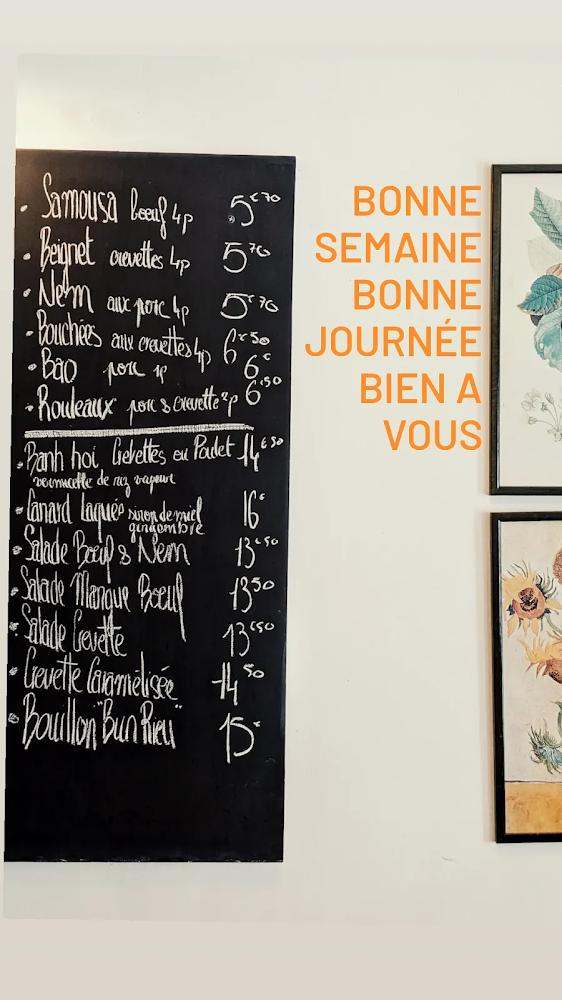 Samousa boeuf 4p 5€70
Beignet crevettes 4p 5€70
Nem aux porc 4p 5€70
Bouchées aux crevettes 4p 6€50
Bao porc 1p 6€
Rouleaux porc & crevette 2p 6€50
Banh hoi Crevettes ou Poulet 14€50
vermicelle de riz vapeur
Canard laqué sirop de miel 16€
gingembre
Salade Boeuf & Nem 13€50
Salade Mangue Boeuf 13€50
Salade Crevette 13€50
Crevette Caramélisée 14€50
Bouillon "Bun Rieu" 15€
BONNE
SEMAINE
BONNE
JOURNÉE
BIEN A
VOUS